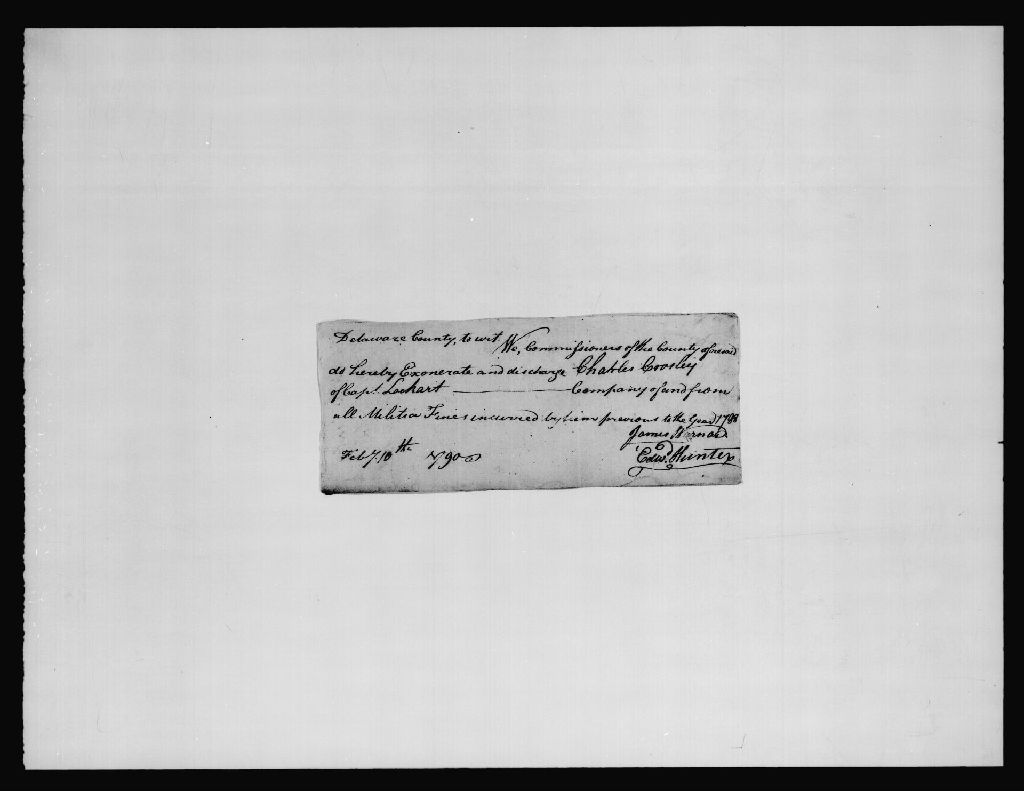 Delaware County, to wit We, Commissioners of the County aforesaid
do hereby Exonerate and discharge Charles Crosley
of Capt. Lockart Company of and from
all Militia Fines incurred by him previous to the Year 1788
James Barnard
Feby. 10th 1790 Edwd. Hunter